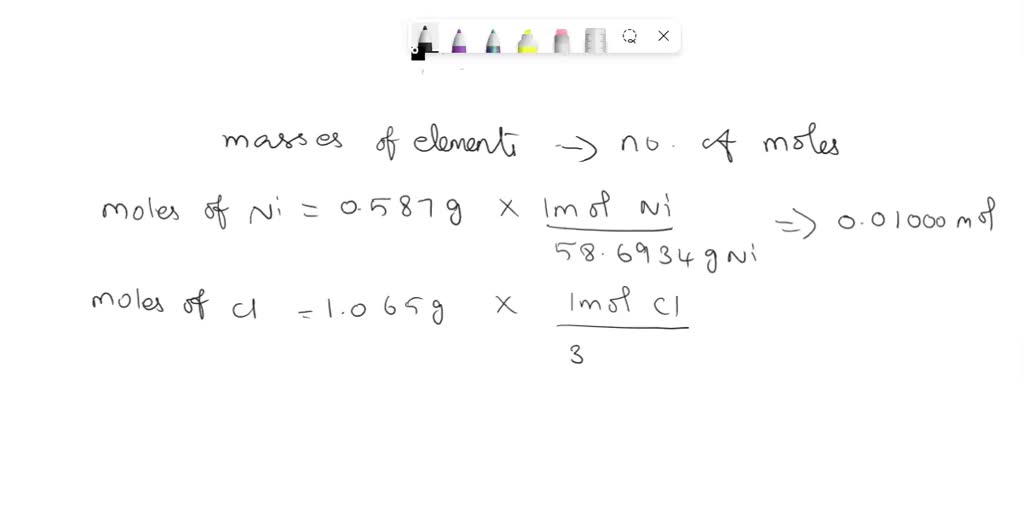 masses of elements → no. of moles
moles of Ni = 0.587g × 1mol Ni / 58.6934gNi ⇒ 0.01000mol
moles of Cl = 1.065g × 1mol Cl / 3